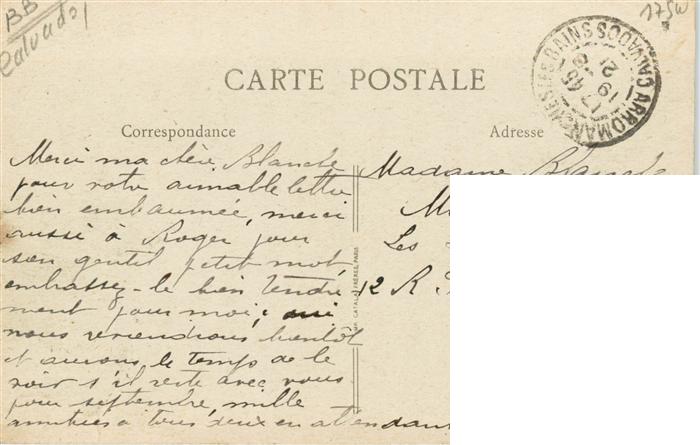 BB
Calvados
175w
CARTE POSTALE
Correspondance
Adresse
ARROMANCHES LES BAINS CALVADOS
17 45
19 8
21
Merci ma chère Blanche
pour votre aimable lettre
bien embaumée, merci
aussi à Roger pour
son gentil petit mot
embrassez-le bien tendre
ment pour moi,
nous reviendrons bientôt
et aurons le temps de le
voir s'il reste avec vous
pour septembre, mille
amitiés à tous deux en attendant
IMP. CATALA FRÈRES, PARIS
Madame Blanche
M
Les
12 R